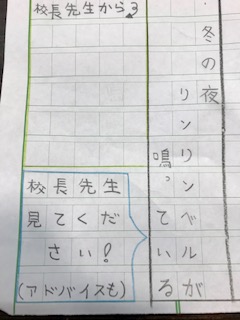 冬の夜
リンリンベルが
鳴っている
校長先生から
校長先生
見てくだ
さい!
(アドバイスも)